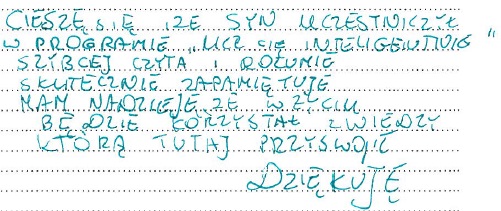 CIESZĘ SIĘ ŻE SYN UCZESTNICZYŁ
W PROGRAMIE „UCZ SIĘ INTELIGENTNIE"
SZYBCEJ CZYTA I ROZUMIE
SKUTECZNIE ZAPAMIĘTUJE
MAM NADZIEJĘ ŻE W ŻYCIU
BĘDZIE KORZYSTAŁ Z WIEDZY
KTÓRĄ TUTAJ PRZYSWOIŁ
DZIĘKUJĘ